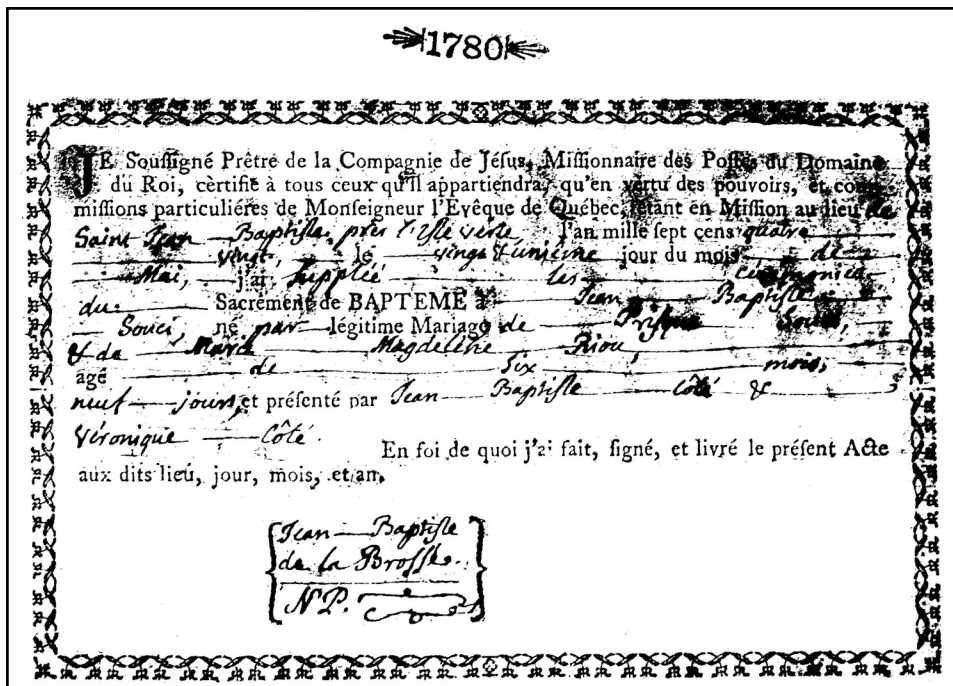 1780
JE Souſſigné Prêtre de la Compagnie de Jéſus, Miſſionnaire des Poſtes du Domaine
du Roi, cèrtifie à tous ceux qu'Il appartiendra, qu'en vertu des pouvoirs, et com-
miſſions particuliéres de Monſeigneur l'Evêque de Québec, étant en Miſſion au dieu de
Saint Jean Baptiste, près l'isle verte l'an mille ſept cens quatre
vingt, le vingt & unième jour du mois de
Mai, j'ai suppléé les cérémonies
du Sacrément de BAPTEME à Jean Baptiste
Souci, né par légitime Mariage de Prisque Souci,
& de Marie Magdelène Riou,
agé de six mois,
neuf jours, et préſenté par Jean Baptiste Côté &
Véronique Côté.
En foi de quoi j'ai fait, ſigné, et livré le préſent Acte
aux dits lieu, jour, mois, et an.
Jean Baptiste
de la Brosse.
N P.